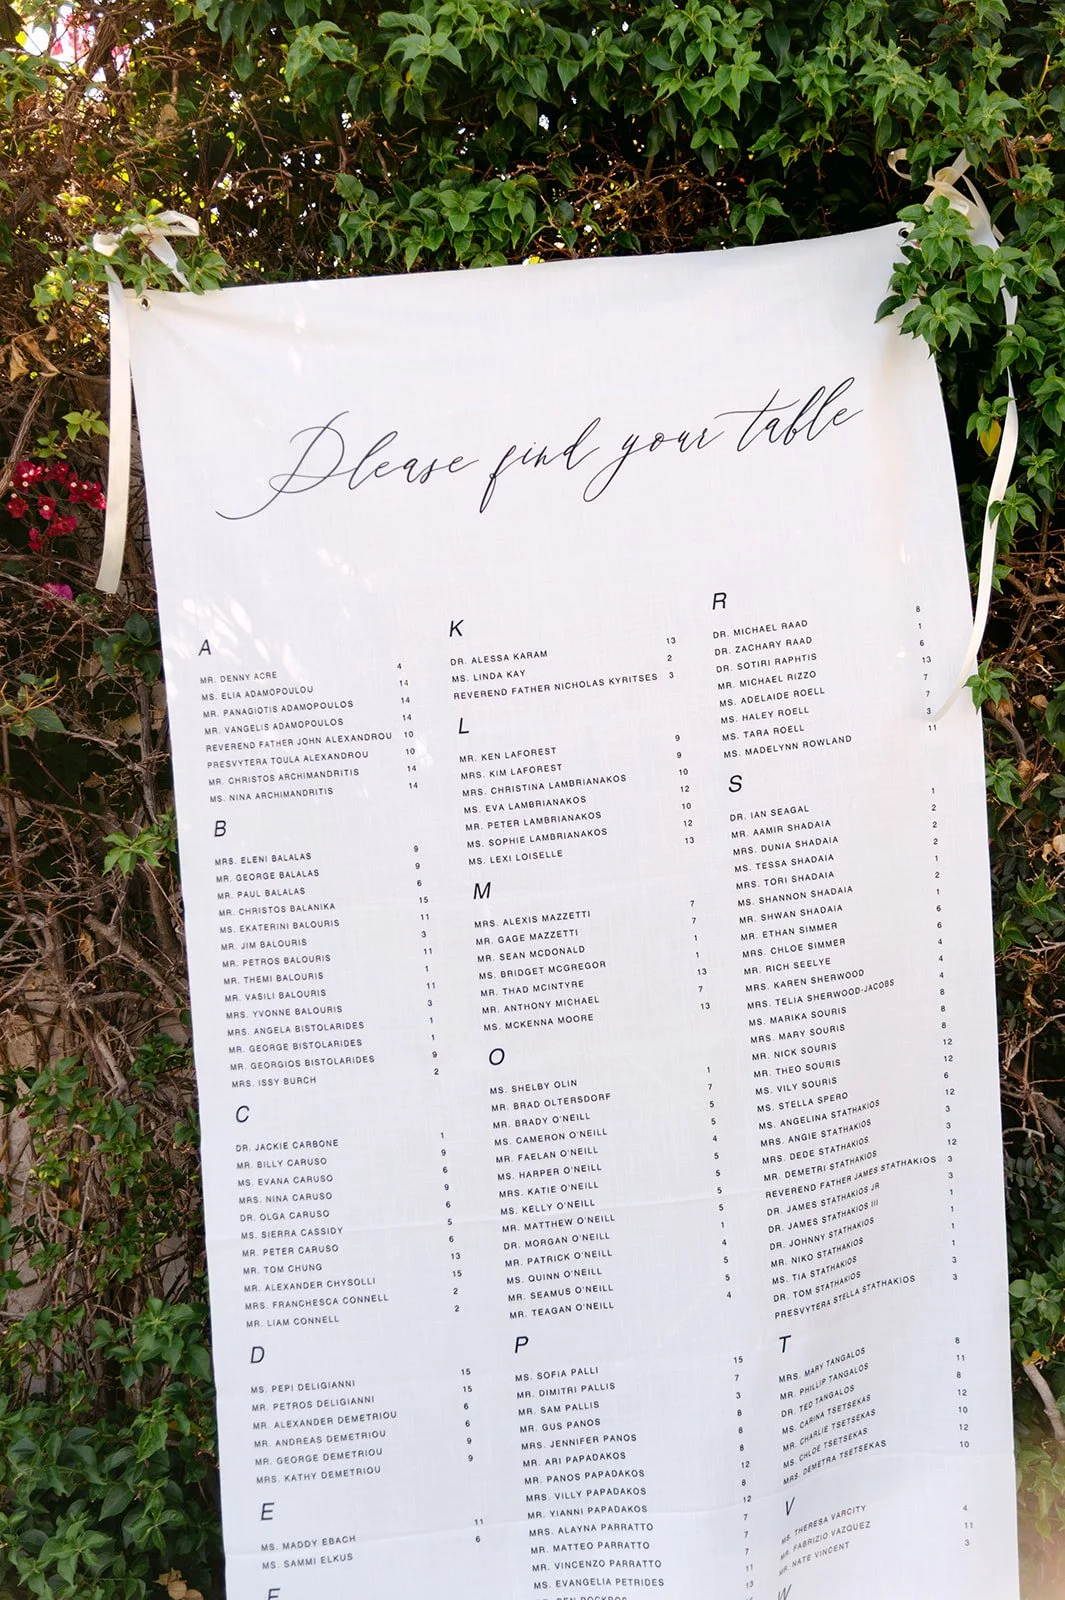 Please find your table
A
MR. DENNY ACRE 4
MS. ELIA ADAMOPOULOU 14
MR. PANAGIOTIS ADAMOPOULOS 14
MR. VANGELIS ADAMOPOULOS 14
REVEREND FATHER JOHN ALEXANDROU 10
PRESVYTERA TOULA ALEXANDROU 10
MR. CHRISTOS ARCHIMANDRITIS 14
MS. NINA ARCHIMANDRITIS 14
B
MRS. ELENI BALALAS 9
MR. GEORGE BALALAS 9
MR. PAUL BALALAS 6
MR. CHRISTOS BALANIKA 15
MS. EKATERINI BALOURIS 11
MR. JIM BALOURIS 3
MR. PETROS BALOURIS 11
MR. THEMI BALOURIS 1
MR. VASILI BALOURIS 11
MRS. YVONNE BALOURIS 3
MRS. ANGELA BISTOLARIDES 1
MR. GEORGE BISTOLARIDES 1
MR. GEORGIOS BISTOLARIDES 9
MRS. ISSY BURCH 2
C
DR. JACKIE CARBONE 1
MR. BILLY CARUSO 9
MS. EVANA CARUSO 6
MRS. NINA CARUSO 9
DR. OLGA CARUSO 6
MS. SIERRA CASSIDY 5
MR. PETER CARUSO 6
MR. TOM CHUNG 13
MR. ALEXANDER CHYSOLLI 15
MRS. FRANCHESCA CONNELL 2
MR. LIAM CONNELL 2
D
MS. PEPI DELIGIANNI 15
MR. PETROS DELIGIANNI 15
MR. ALEXANDER DEMETRIOU 6
MR. ANDREAS DEMETRIOU 6
MR. GEORGE DEMETRIOU 9
MRS. KATHY DEMETRIOU 9
E
MS. MADDY EBACH 11
MS. SAMMI ELKUS 6
K
DR. ALESSA KARAM 13
MS. LINDA KAY 2
REVEREND FATHER NICHOLAS KYRITSES 3
L
MR. KEN LAFOREST 9
MRS. KIM LAFOREST 9
MRS. CHRISTINA LAMBRIANAKOS 10
MS. EVA LAMBRIANAKOS 12
MR. PETER LAMBRIANAKOS 10
MS. SOPHIE LAMBRIANAKOS 12
MS. LEXI LOISELLE 13
M
MRS. ALEXIS MAZZETTI 7
MR. GAGE MAZZETTI 7
MR. SEAN MCDONALD 1
MS. BRIDGET MCGREGOR 1
MR. THAD MCINTYRE 13
MR. ANTHONY MICHAEL 7
MS. MCKENNA MOORE 13
O
MS. SHELBY OLIN 1
MR. BRAD OLTERSDORF 7
MR. BRADY O'NEILL 5
MS. CAMERON O'NEILL 5
MR. FAELAN O'NEILL 4
MS. HARPER O'NEILL 5
MRS. KATIE O'NEILL 5
MS. KELLY O'NEILL 5
MR. MATTHEW O'NEILL 5
DR. MORGAN O'NEILL 1
MR. PATRICK O'NEILL 4
MS. QUINN O'NEILL 5
MR. SEAMUS O'NEILL 5
MR. TEAGAN O'NEILL 4
P
MS. SOFIA PALLI 15
MR. DIMITRI PALLIS 7
MR. SAM PALLIS 3
MR. GUS PANOS 8
MRS. JENNIFER PANOS 8
MR. ARI PAPADAKOS 8
MR. PANOS PAPADAKOS 12
MRS. VILLY PAPADAKOS 8
MR. YIANNI PAPADAKOS 12
MRS. ALAYNA PARRATTO 7
MR. MATTEO PARRATTO 7
MR. VINCENZO PARRATTO 7
MS. EVANGELIA PETRIDES 11
R
DR. MICHAEL RAAD 8
DR. ZACHARY RAAD 1
DR. SOTIRI RAPHTIS 6
MR. MICHAEL RIZZO 13
MS. ADELAIDE ROELL 7
MS. HALEY ROELL 7
MS. TARA ROELL 3
MS. MADELYNN ROWLAND 11
S
DR. IAN SEAGAL 1
MR. AAMIR SHADAIA 2
MRS. DUNIA SHADAIA 2
MS. TESSA SHADAIA 2
MRS. TORI SHADAIA 1
MS. SHANNON SHADAIA 2
MR. SHWAN SHADAIA 1
MR. ETHAN SIMMER 6
MRS. CHLOE SIMMER 6
MR. RICH SEELYE 4
MRS. KAREN SHERWOOD 4
MRS. TELIA SHERWOOD-JACOBS 4
MS. MARIKA SOURIS 8
MRS. MARY SOURIS 8
MR. NICK SOURIS 8
MR. THEO SOURIS 12
MS. VILY SOURIS 12
MS. STELLA SPERO 6
MS. ANGELINA STATHAKIOS 12
MRS. ANGIE STATHAKIOS 3
MRS. DEDE STATHAKIOS 3
MR. DEMETRI STATHAKIOS 12
REVEREND FATHER JAMES STATHAKIOS 3
DR. JAMES STATHAKIOS JR 3
DR. JAMES STATHAKIOS III 1
DR. JOHNNY STATHAKIOS 1
MR. NIKO STATHAKIOS 1
MS. TIA STATHAKIOS 1
DR. TOM STATHAKIOS 3
PRESVYTERA STELLA STATHAKIOS 3
T
MRS. MARY TANGALOS 8
MR. PHILLIP TANGALOS 11
DR. TED TANGALOS 8
MS. CARINA TSETSEKAS 12
MR. CHARLIE TSETSEKAS 10
MS. CHLOE TSETSEKAS 12
MRS. DEMETRA TSETSEKAS 10
V
MS. THERESA VARCITY 4
MR. FABRIZIO VAZQUEZ 11
MR. NATE VINCENT 3
W